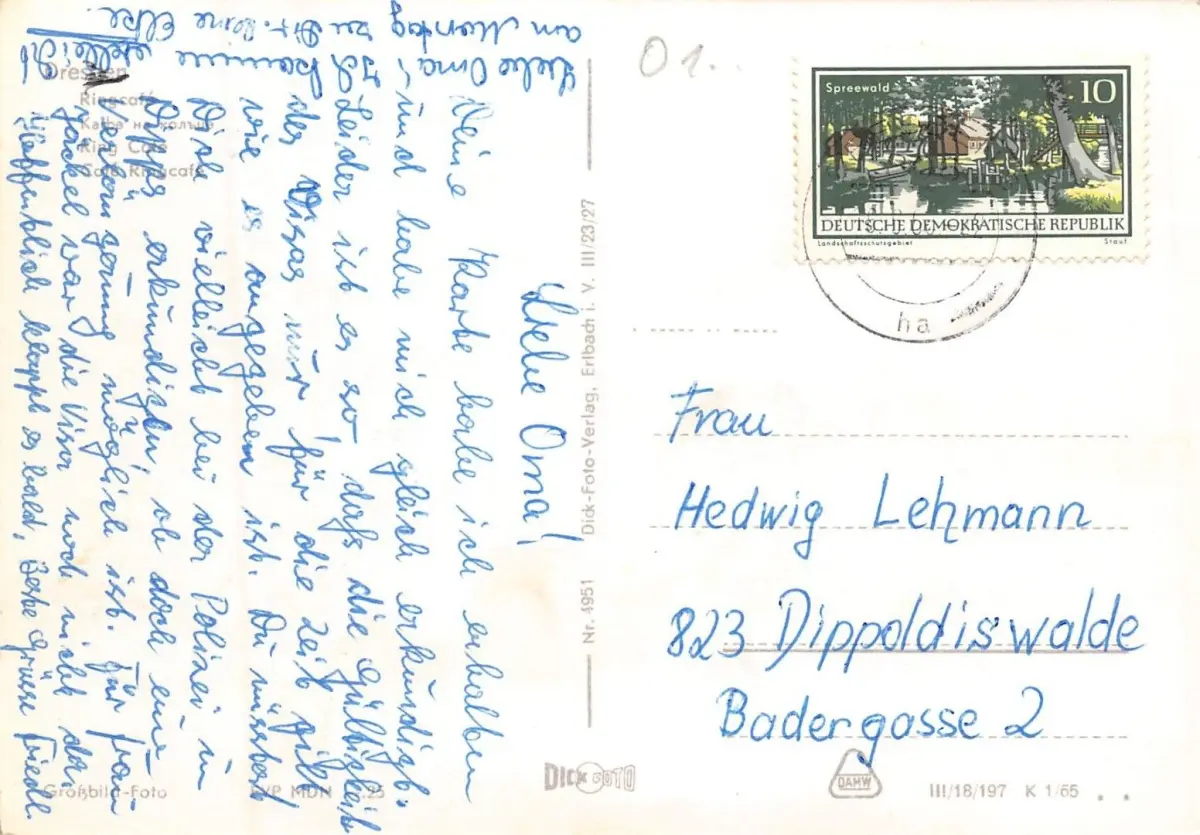 Liebe Oma!
Deine Karte habe ich erhalten
und habe mich gleich erkundigt.
Leider ist es so, daß die Gültigkeit
des Visas nur für die Zeit gilt
wie es angegeben ist. Du müsstest
Dich vielleicht bei der Polizei in
Dipps erkundigen, ob doch eine
Verlängerung möglich ist. Für Frau
Jäckel war die Visa noch nicht da.
Hoffentlich klappt es bald, Beste Grüsse Friedl.
Liebe Oma,
Ich komme vielleicht
am Montag
zu Dir. Deine Elke.
Dresden
Ringcafé
Кафе на кольце
Ring Café
Café Ringcafé
Großbild-Foto
EVP MDN
25
Nr. 4951
Dick-Foto-Verlag, Erlbach i. V. III/23/27
DICK FOTO
01..
Spreewald
10
DEUTSCHE DEMOKRATISCHE REPUBLIK
Landschaftsschutzgebiet
Stauf
ha
Frau
Hedwig Lehmann
823 Dippoldiswalde
Badergasse 2
DAMW
III/18/197 K 1/65